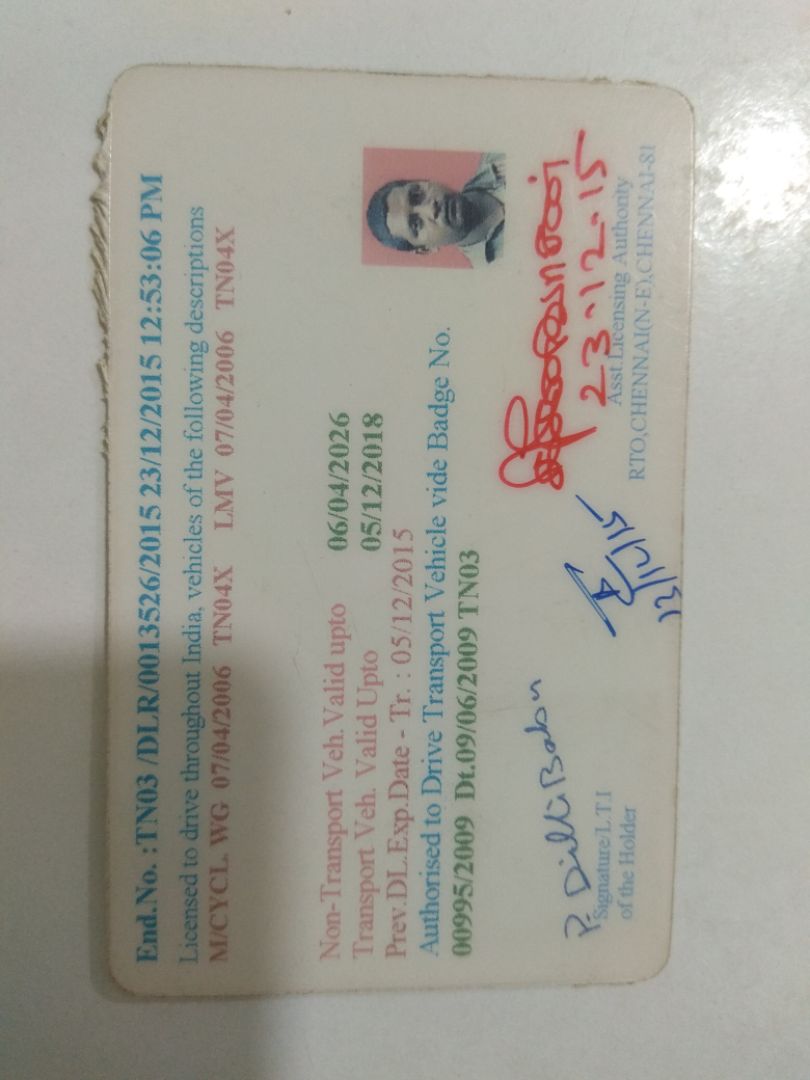 End.No. :TN03 /DLR/0013526/2015 23/12/2015 12:53:06 PM
Licensed to drive throughout India, vehicles of the following descriptions
M/CYCL. WG 07/04/2006 TN04X LMV 07/04/2006 TN04X
Non-Transport Veh.Valid upto 06/04/2026
Transport Veh. Valid Upto 05/12/2018
Prev.DL.Exp.Date - Tr. : 05/12/2015
Authorised to Drive Transport Vehicle vide Badge No.
00995/2009 Dt.09/06/2009 TN03
P. Dilli Babu
Signature/L.T.I
of the Holder
23.12.15
Asst.Licensing Authority
RTO,CHENNAI(N-E),CHENNAI-81